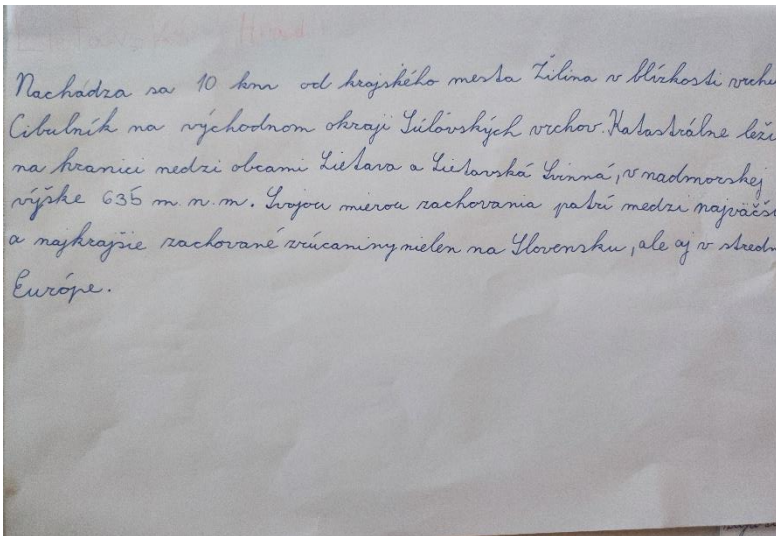 Hrad
Nachádza sa 10 km od krajského mesta Žilina v blízkosti vrchu
Cibulník na východnom okraji Súľovských vrchov. Katastrálne leží
na hranici nedzi obcami Lietava a Lietavská Svinná, v nadmorskej
výške 635 m. n. m. Svojou mierou zachovania patrí medzi najväčši
a najkrajšie zachované zrúcaniny nielen na Slovensku, ale aj v stredn
Európe.